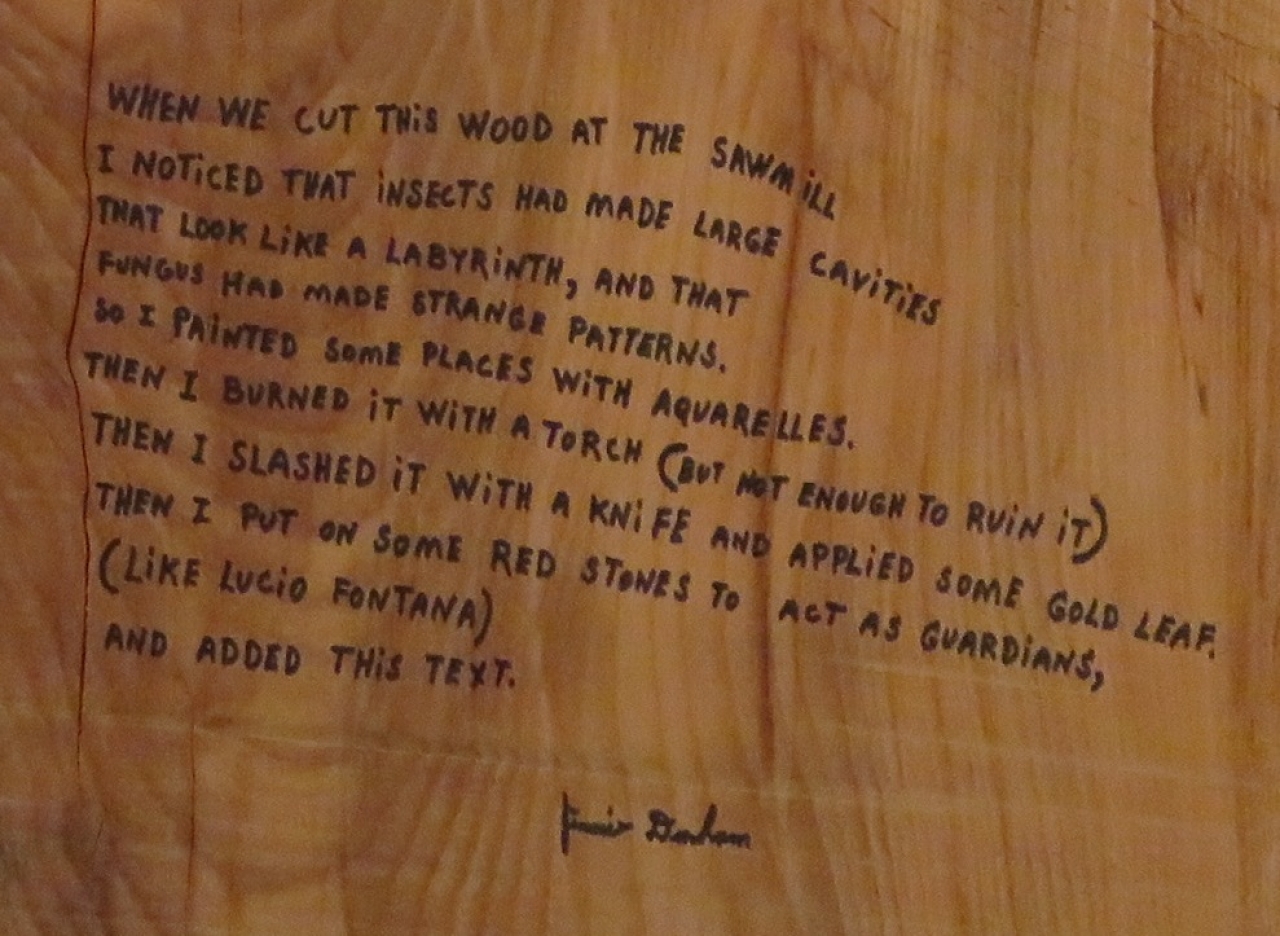 WHEN WE CUT THiS WOOD AT THE SAWMiLL
I NOTiCED THAT iNSECTS HAD MADE LARGE CAViTiES
THAT LOOK LiKE A LABYRiNTH, AND THAT
FUNGUS HAD MADE STRANGE PATTERNS.
SO I PAiNTED SOME PLACES WiTH AQUARELLES.
THEN I BURNED iT WiTH A TORCH (BUT NOT ENOUGH TO RUiN iT)
THEN I SLASHED iT WiTH A KNiFE AND APPLiED SOME GOLD LEAF.
THEN I PUT ON SOME RED STONES TO ACT AS GUARDiANS,
(LiKE LUCiO FONTANA)
AND ADDED THiS TEXT.
Jimmie Durham